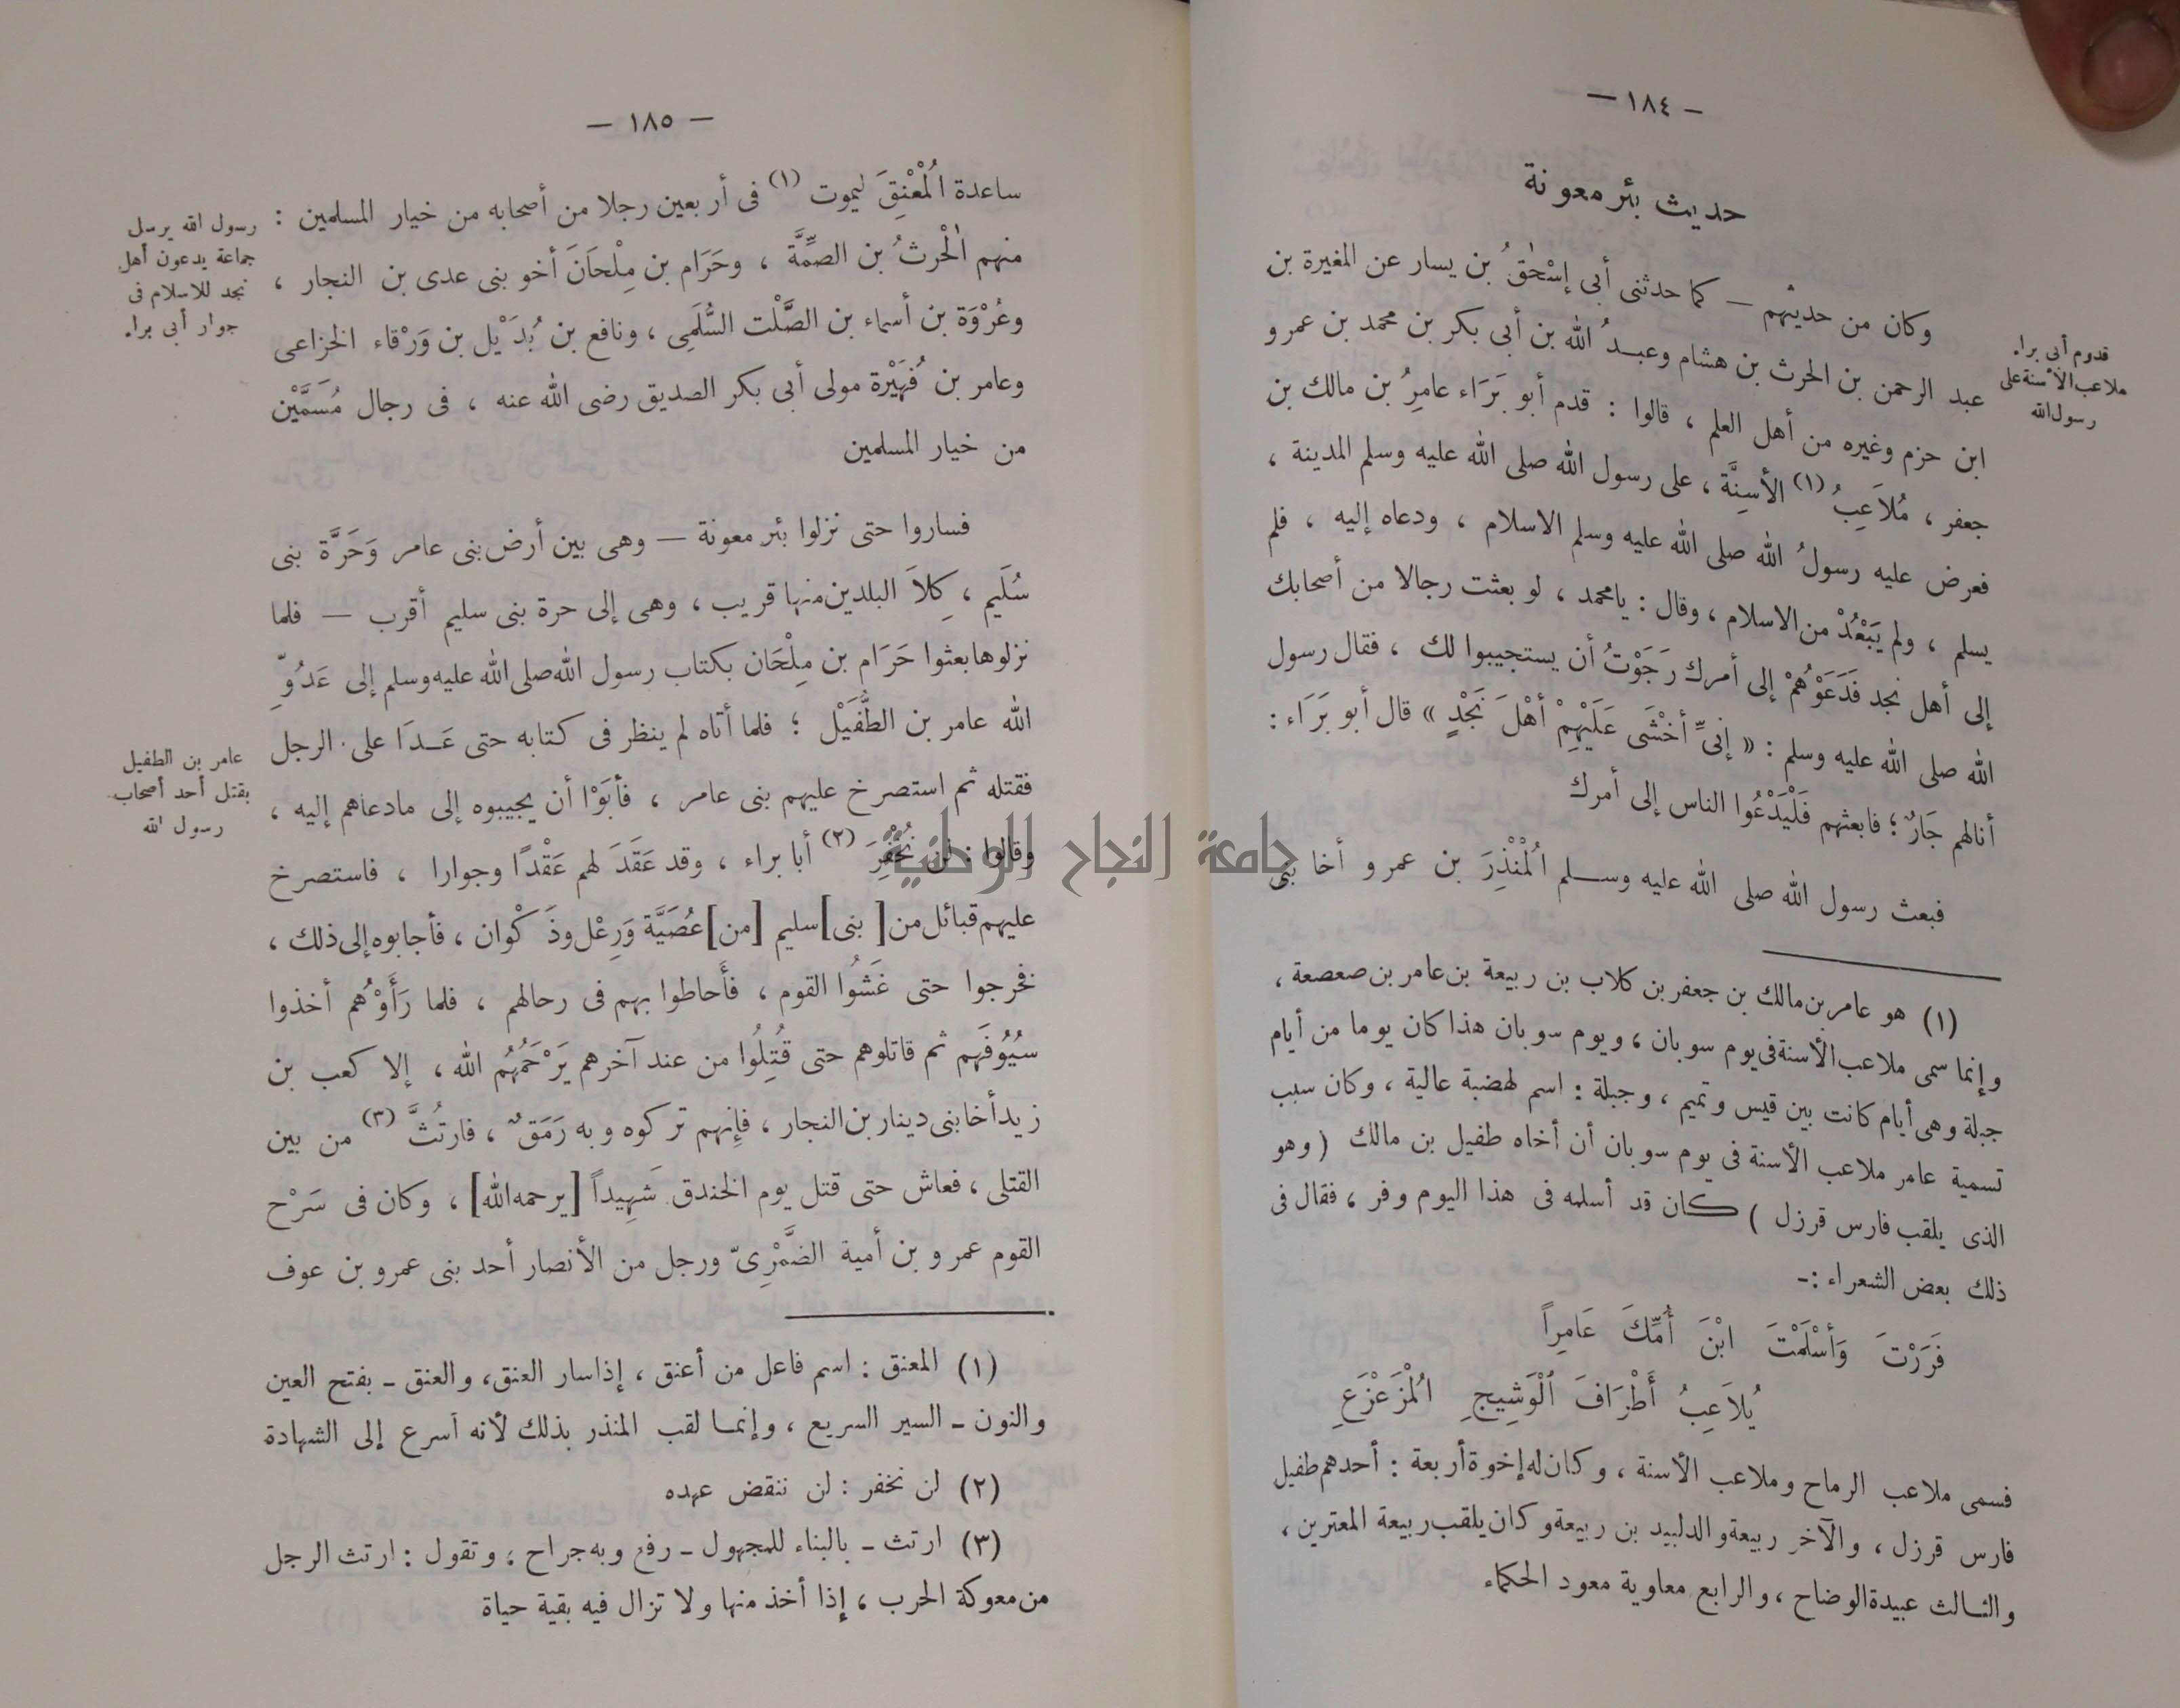 — ١٨٤ —
حديث بئر معونة
وكان من حديثهم — كما حدثنى أبى إسْحٰقُ بن يسار عن المغيرة بن
عبد الرحمن بن الحرث بن هشام وعبدُ الله بن أبى بكر بن محمد بن عمرو
ابن حزم وغيره من أهل العلم ، قالوا : قدم أبو بَرَاء عامِرُ بن مالك بن
جعفر ، مُلاَعِبُ (١) الأسِنَّة ، على رسول الله صلى الله عليه وسلم المدينة ،
فعرض عليه رسولُ الله صلى الله عليه وسلم الاسلام ، ودعاه إليه ، فلم
يسلم ، ولم يَبْعُدْ من الاسلام ، وقال : يا محمد ، لو بعثت رجالا من أصحابك
إلى أهل نجد فَدَعَوْهُمْ إلى أمرك رَجَوْتُ أن يستجيبوا لك ، فقال رسول
الله صلى الله عليه وسلم : « إنىِّ أخْشَى عَلَيْهِمْ أهْلَ نَجْدٍ » قال أبو بَرَاء :
أنا لهم جَارٌ ؛ فابعثهم فَلْيَدْعُوا الناس إلى أمرك
فبعث رسول الله صلى الله عليه وسلم المُنْذِرَ بن عمرو أخا بنى
قدوم أبى براء
ملاعب الأسنة على
رسول الله
(١) هو عامر بن مالك بن جعفر بن كلاب بن ربيعة بن عامر بن صعصعة ،
وإنما سمى ملاعب الأسنة فى يوم سوبان ، ويوم سوبان هذا كان يوما من أيام
جبلة وهى أيام كانت بين قيس وتميم ، وجبلة : اسم لهضبة عالية ، وكان سبب
تسمية عامر ملاعب الأسنة فى يوم سوبان أن أخاه طفيل بن مالك ( وهو
الذى يلقب فارس قرزل ) كان قد أسلمه فى هذا اليوم وفر ، فقال فى
ذلك بعض الشعراء :-
فَرَرْتَ وَأَسْلَمْتَ ابْنَ أُمِّكَ عَامِراً
يُلاَعِبُ أَطْرَافَ الْوَشِيجِ الْمُزَعْزَعِ
فسمى ملاعب الرماح وملاعب الأسنة ، وكان له إخوة أربعة : أحدهم طفيل
فارس قرزل ، والآخر ربيعة والد لبيد بن ربيعة وكان يلقب ربيعة المعترين ،
والثالث عبيدة الوضاح ، والرابع معاوية معود الحكماء
— ١٨٥ —
ساعدة المُعْنِقَ ليموت (١) فى أربعين رجلا من أصحابه من خيار المسلمين :
منهم الْحٰرثُ بن الصِّمَّة ، وحَرَام بن مِلْحَانَ أخو بنى عدى بن النجار ،
وعُرْوَة بن أسماء بن الصَّلْت السُّلَمِى ، ونافع بن بُدَيْل بن وَرْقاء الخزاعى
وعامر بن فُهَيْرة مولى أبى بكر الصديق رضى الله عنه ، فى رجال مُسَمَّيْن
من خيار المسلمين
فساروا حتى نزلوا بئر معونة — وهى بين أرض بنى عامر وَحَرَّة بنى
سُلَيم ، كِلاَ البلدين منها قريب ، وهى إلى حرة بنى سليم أقرب — فلما
نزلوها بعثوا حَرَام بن مِلْحَان بكتاب رسول الله صلى الله عليه وسلم إلى عَدُوِّ
الله عامر بن الطُّفَيْل ؛ فلما أتاه لم ينظر فى كتابه حتى عَدَا على الرجل
فقتله ثم استصرخ عليهم بنى عامر ، فأبَوْا أن يجيبوه إلى مادعاهم إليه ،
وقالوا : لن نُخْفِرَ (٢) أبا براء ، وقد عَقَدَ لهم عَقْدًا وجوارا ، فاستصرخ
عليهم قبائل من [بنى] سليم [من] عُصَيَّة وَرِعْل وذَكْوان ، فأجابوه إلى ذلك ،
فخرجوا حتى غَشُوا القوم ، فأحاطوا بهم فى رحالهم ، فلما رَأَوْهُم أخذوا
سُيُوفَهم ثم قاتلوهم حتى قُتِلُوا من عند آخرهم يَرْحَمُهُم الله ، إلا كعب بن
زيد أخا بنى دينار بن النجار ، فإنهم تركوه وبه رَمَقٌ ، فارتُثَّ (٣) من بين
القتلى ، فعاش حتى قتل يوم الخندق شَهِيداً [يرحمه الله] ، وكان فى سَرْح
القوم عمرو بن أمية الضَّمْرِىّ ورجل من الأنصار أحد بنى عمرو بن عوف
رسول الله يرسل
جماعة يدعون أهل
نجد للاسلام فى
جوار أبى براء
عامر بن الطفيل
يقتل أحد أصحاب
رسول الله
(١) المعنق : اسم فاعل من أعنق ، إذا سار العنق ، والعنق - بفتح العين
والنون - السير السريع ، وإنما لقب المنذر بذلك لأنه أسرع إلى الشهادة
(٢) لن نخفر : لن ننقض عهده
(٣) ارتث - بالبناء للمجهول - رفع وبه جراح ، وتقول : ارتث الرجل
من معركة الحرب ، إذا أخذ منها ولا تزال فيه بقية حياة
جامعة النجاح الوطنية